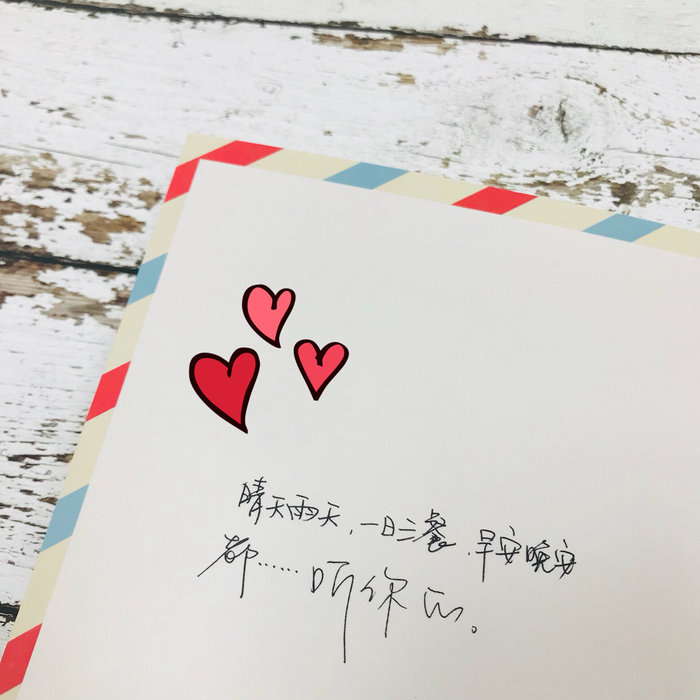 晴天雨天，一日三餐，早安晚安
都……听你的。